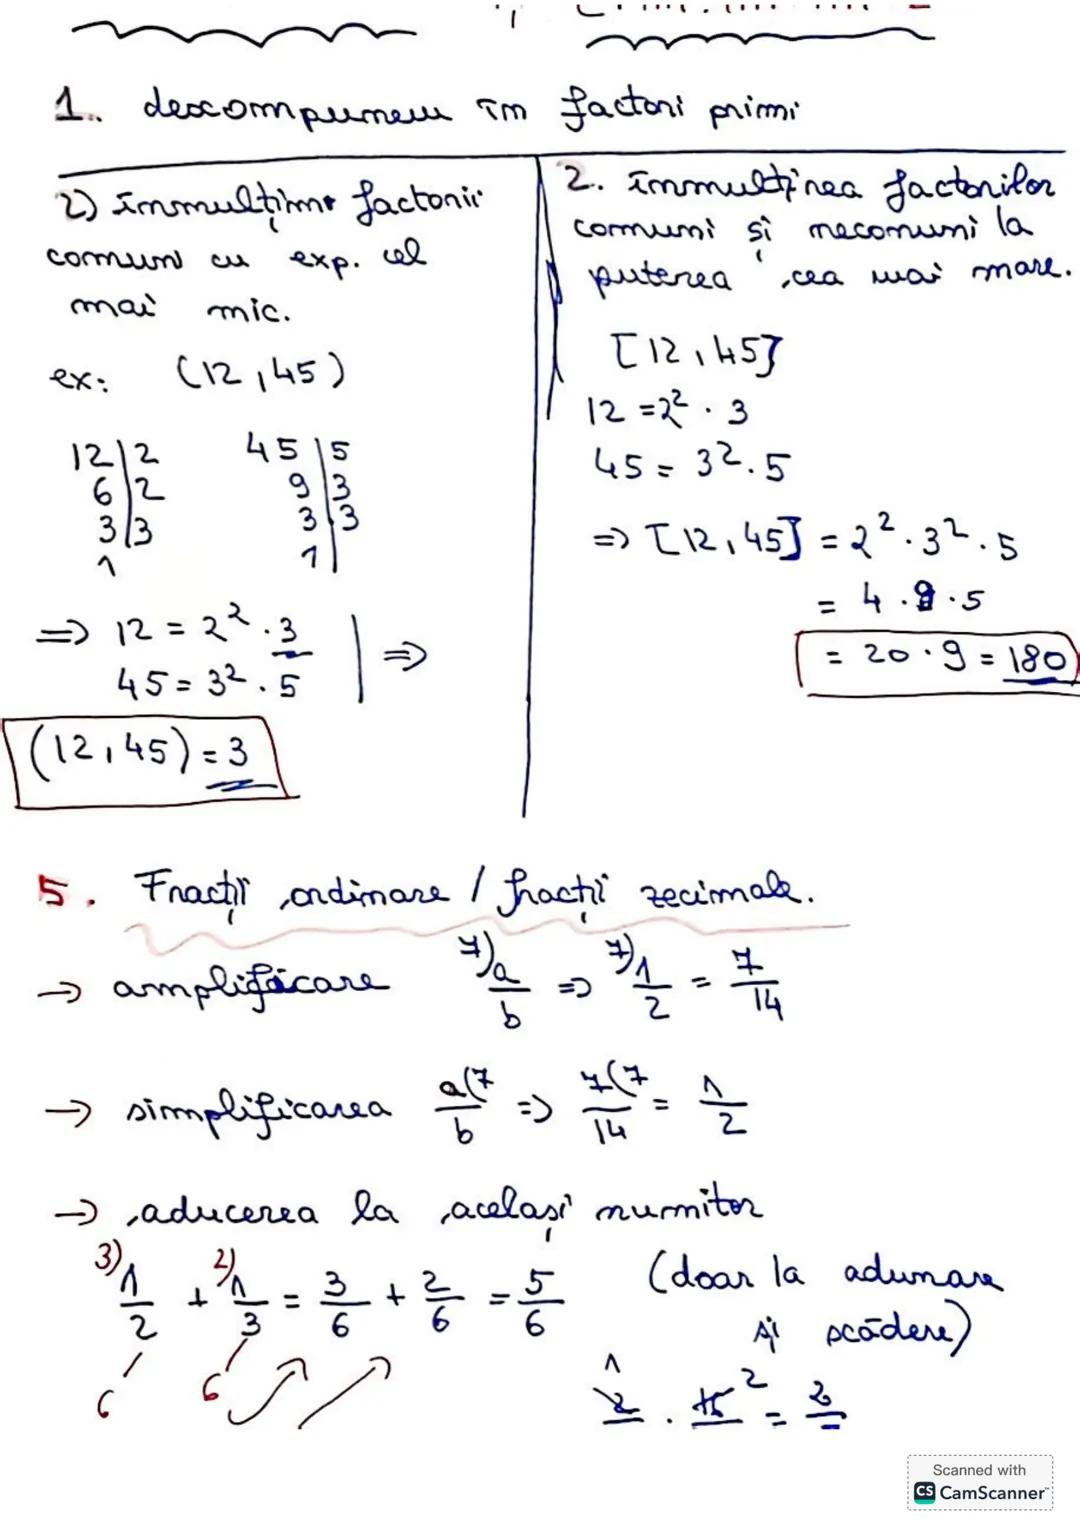 1. descompunem în factori primi
2) înmulțim factorii
comuni cu exp. cel
mai mic.
ex: (12,45)
12|2 45|5
6|2 9|3
3|3 3|3
1 1|
=> 12 = 2² · 3
45 = 3² · 5 | =>
(12,45) = 3
2. înmulțirea factorilor
comuni și necomuni la
puterea cea mai mare.
[12,45]
12 = 2² · 3
45 = 3² · 5
=> [12,45] = 2² · 3² · 5
= 4 · 9 · 5
= 20 · 9 = 180
5. Fracții ordinare / fracții zecimale.
→ amplificare 7)a/b => 7)1/2 = 7/14
→ simplificarea a(7/b => 7(7/14 = 1/2
→ aducerea la același numitor
3)1/2 + 2)1/3 = 3/6 + 2/6 = 5/6 (doar la adunare
6 6 și scădere)
Scanned with
CS CamScanner